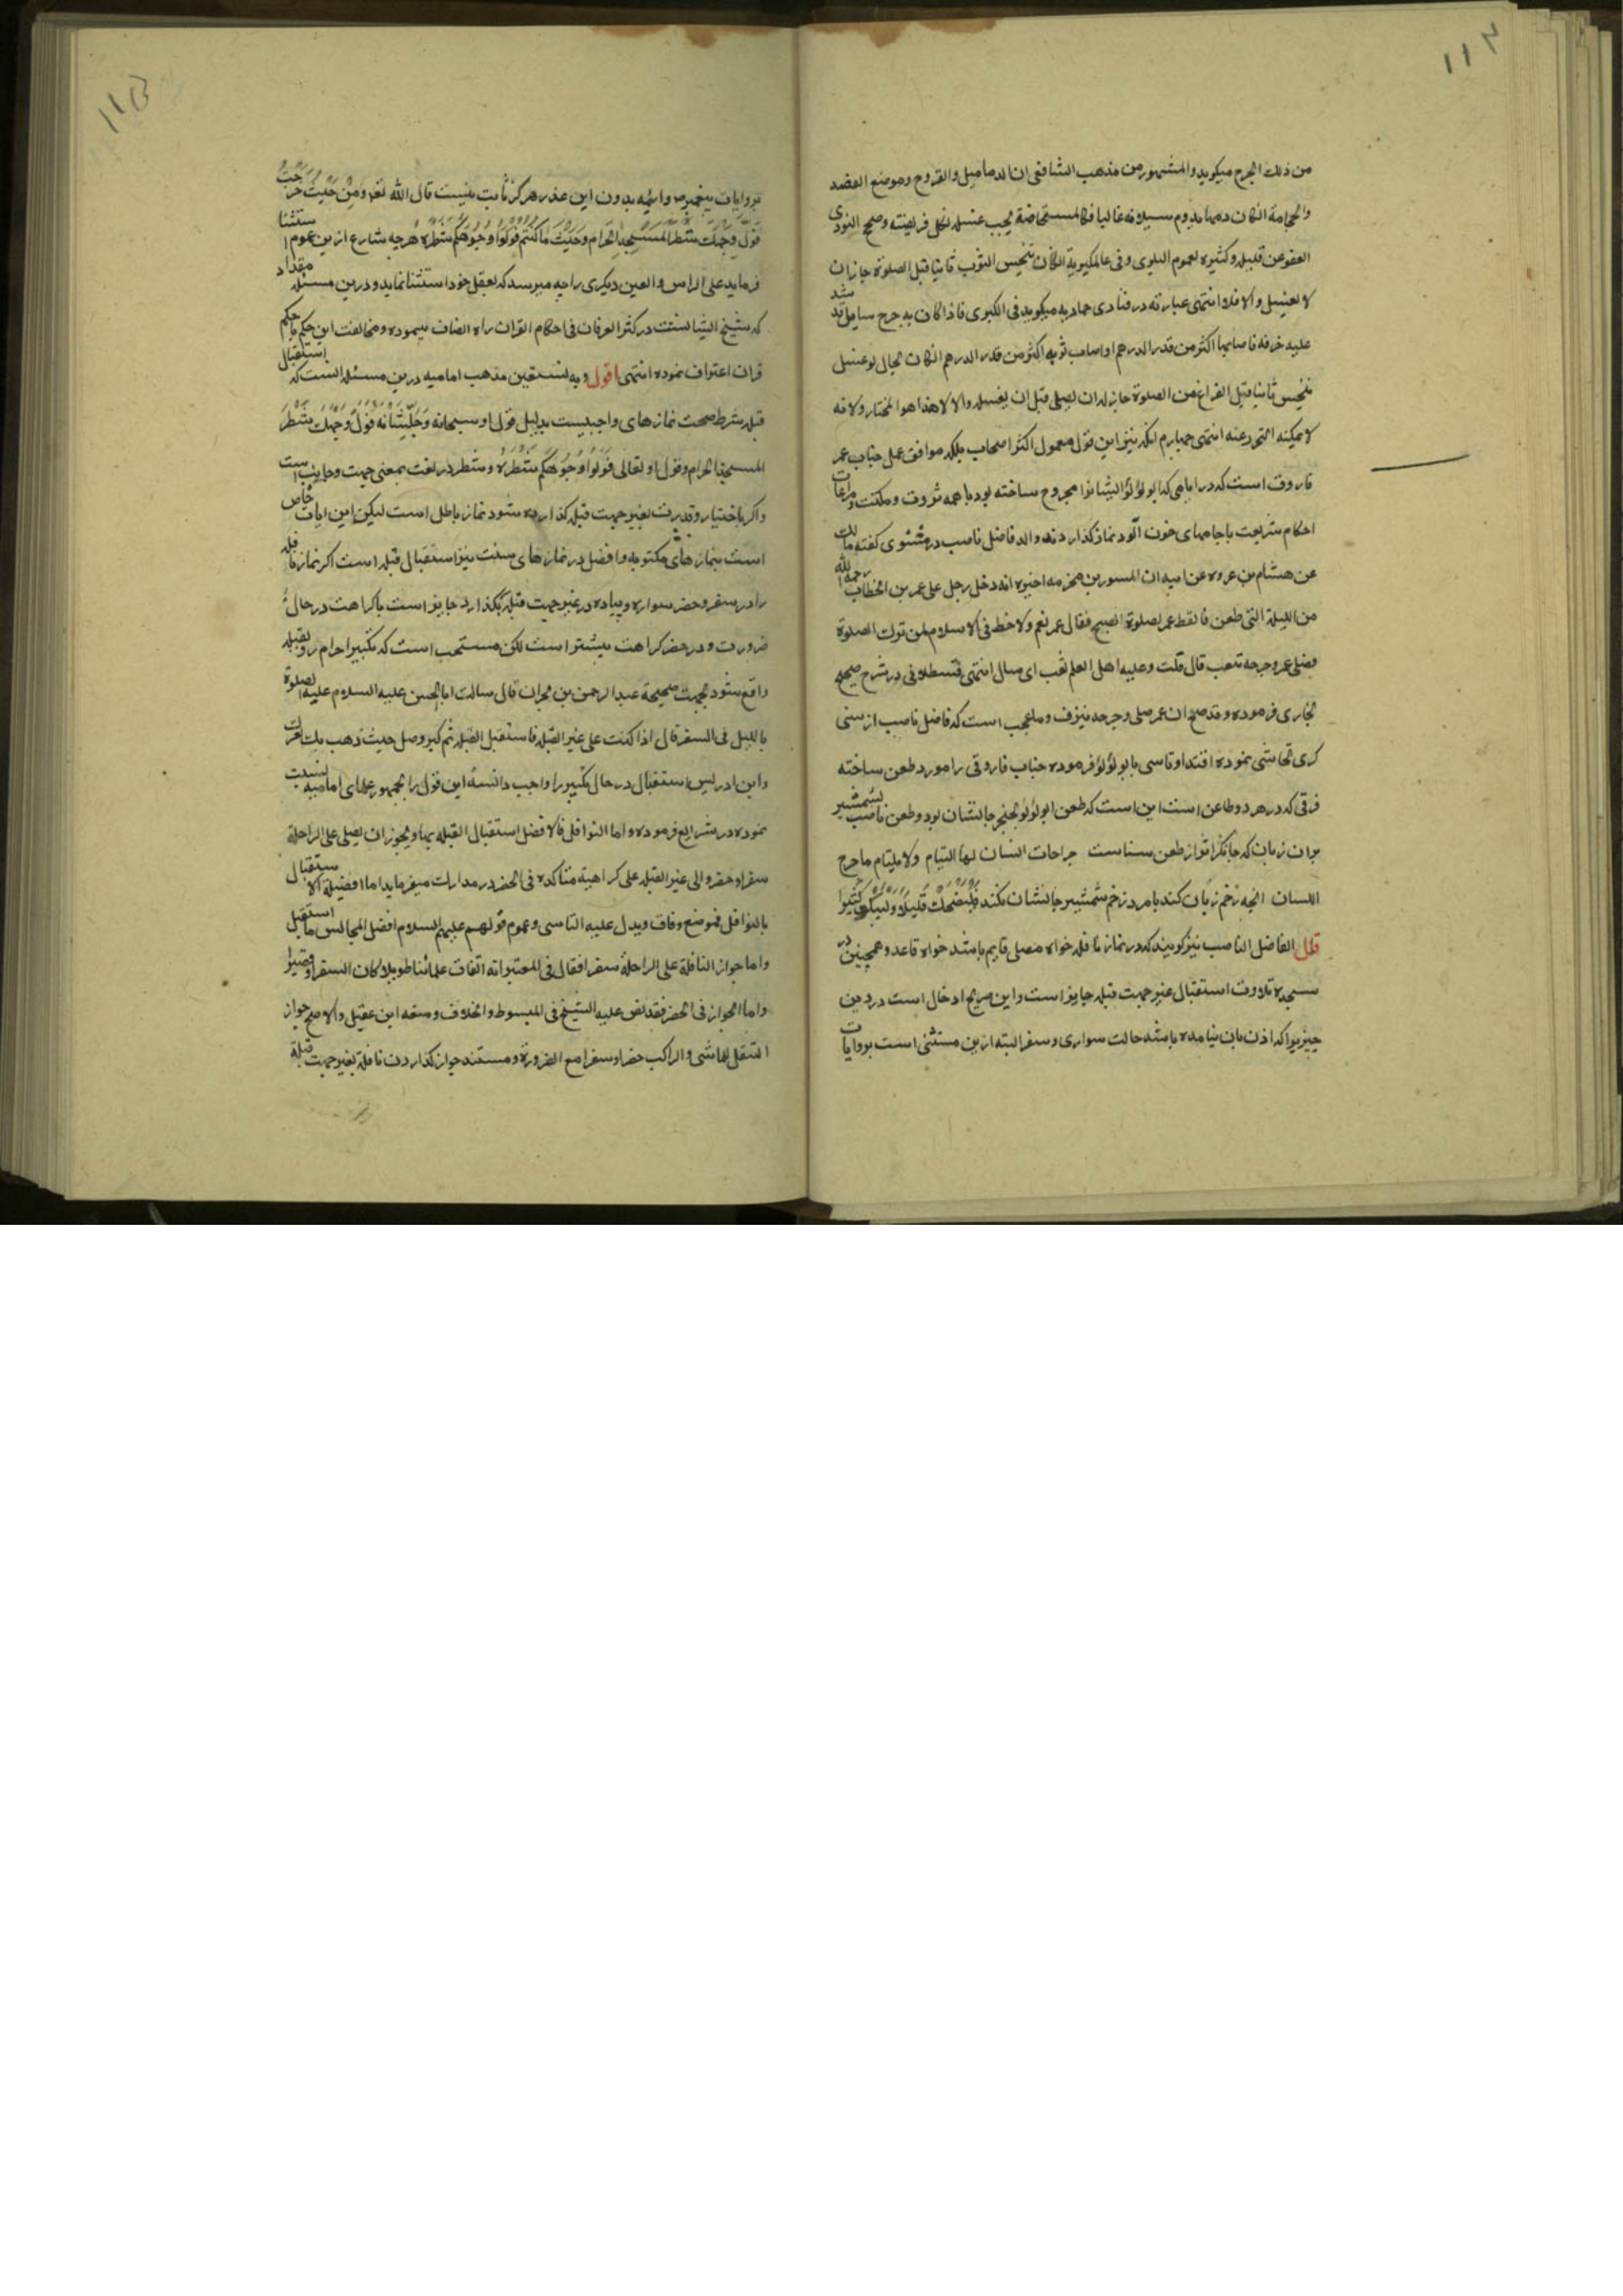 ١١٢
من ذلك الجرح میکوید والمشهور من مذهب الشافعی ان الدمامیل والقروح وموضع الفصد
والحجامة انکان دمها یدوم سیلانه غالبا فکالمستحاضة یجب غسله لکل فریضته وصحح النودی
العفو عن قلیله وکثیره لعموم البلوی وفی عالمکیریة انکان تنجیس الثوب ثانیا قبل الصلوة جاز ان
لا یغسل والا فلا انتهی عبارته در فتاوی حمادیه میکوید فی الکبری فاذا کان به جرح سایل قد شد
علیه خرقه فاصابها اکثر من قدر الدرهم او اصاب ثوبه اکثر من قدر الدرهم انکان بحال لو غسل
تنجیس ثانیا قبل الفراغ من الصلوة جاز له ان یصلی قبل ان یغسله والا لا هذا هو المختار ولانه
لا یمکنه التحرز عنه انتهی چهارم انکه نیز این قول معمول اکثر اصحاب بلکه موافق عمل جناب عمر
فاروق است که در ایامی که ابولؤلؤ ایشانرا مجروح ساخته بود با همه ثروت ومکنت ومراعات
احکام شریعت با جامهای خون آلود نماز کذاردند والد فاضل ناصب در مسوی کفته مالك
عن هشام بن عروه عن ابیه ان المسور بن مخرمه اخبره انه دخل رجل علی عمر بن الخطاب رحمه الله
من اللیلة التی طعن فایقظ عمر لصلوة الصبح فقال عمر نعم ولاحظ فی الاسلام لمن ترك الصلوة
فصلی عمر وجرحه تثعب قال قلت وعلیه اهل العلم ثعب ای سال انتهی قسطلانی در شرح صحیح
بخاری فرموده وقد صح ان عمر صلی وجرحه ینزف وما عجب است که فاضل ناصب از سنی
کری تحاشی نموده اقتدا وتاسی بابو لؤلؤ فرموده جناب فاروقی را مورد طعن ساخته
فرقی که در هر دو طاعن است این است که طعن ابولؤلؤ بخنجر جانستان بود وطعن ناصب بشمشیر
بران زبان که جانکزا تر از طعن سنانست جراحات السنان لها التیام ولا یلتام ما جرح
اللسان انچه زخم زبان کند با مرد زخم شمشیر جانستان نکند فَلْیَضْحَكُوا قَلِیلًا وَلْیَبْكُوا كَثِیرًا
قال الفاضل الناصب نیز کویند که در نماز نافله خواه مصلی قایم باشد خواه قاعد وهمچنین در
سجده تلاوت استقبال غیر جهت قبله جایز است واین صریح ادخال است در دین
چیزیرا که اذن بان نیامده باشد حالت سواری وسفر البته ازین مستثنی است بروایات
١١٣
بروایات پیغمبر وائمه بدون این عذر هرکز ثابت نیست قال الله تعم وَمِنْ حَیْثُ خَرَجْتَ
فَوَلِّ وَجْهَكَ شَطْرَ الْمَسْجِدِ الْحَرَامِ وَحَیْثُ مَا كُنْتُمْ فَوَلُّوا وُجُوهَكُمْ شَطْرَهُ هرچه شارع ازین عموم استثنا
فرماید علی الراس والعین دیکری را چه میرسد که بعقل خود استثنا نماید ودرین مسئله مقداد
که شیخ ایشانست در کنز العرفان فی احکام القران راه انصاف پیموده ومخالفت این حکم با حکم
قران اعتراف نموده انتهی اقول وبه نستعین مذهب امامیه درین مسئله انست که استقبال
قبله شرط صحت نمازهای واجبیست بدلیل قول او سبحانه وَجَلَّ شَانُهُ فَوَلِّ وَجْهَكَ شَطْرَ
المسجد الحرام وقول او تعالی فَوَلُّوا وُجُوهَكُمْ شَطْرَهُ وشطر در لغت بمعنی جهت وجانب است
واکر باختیار وقدرت بغیر جهت قبله کذارده شود نماز باطل است لیکن این ایات خاص
است بنمازهای مکتوبه وافضل در نمازهای سنت نیز استقبال قبله است اکر نماز نافله
را در سفر وحضر سواره وپیاده در غیر جهت قبله بکذارد جایز است با کراهت در حال
ضرورت ودر حضر کراهت بیشتر است لکن مستحب است که تکبیر احرام رو بقبله
واقع شود بجهت صحیحة عبد الرحمن بن نجران قال سالت ابا الحسن علیه السلام علیه الصلوة
باللیل فی السفر قال اذا کنت علی غیر القبله فاستقبل القبله ثم کبر وصل حیث ذهب بك بعیرك
وابن ادریس استقبال در حال تکبیر را واجب دانسته این قول را بجمهور علمای امامیه نسبت
نموده در شرایع فرموده واما النوافل فالافضل استقبال القبله بها ویجوز ان یصلی علی الراحلة
سفرا وحضرا والی غیر القبله علی کراهیة متأکده فی الحضر در مدارات میفرماید اما افضیلة الاستقبال
بالنوافل فموضع وفاق ویدل علیه التاسی وعموم قولهم علیهم السلام افضل المجالس ما استقبل
واما جواز النافلة علی الراحلة سفرا فقال فی المعتبر انه اتفاق علمائنا طویلا کان السفر او قصیرا
واما الجواز فی الحضر فقد نص علیه الشیخ فی المبسوط والخلاف ومنعه ابن عقیل والاصح جواز
التنفل للماشی والراکب حضرا وسفرا مع الضرورة ومستند جواز کذاردن نافله بغیر جهت قبله